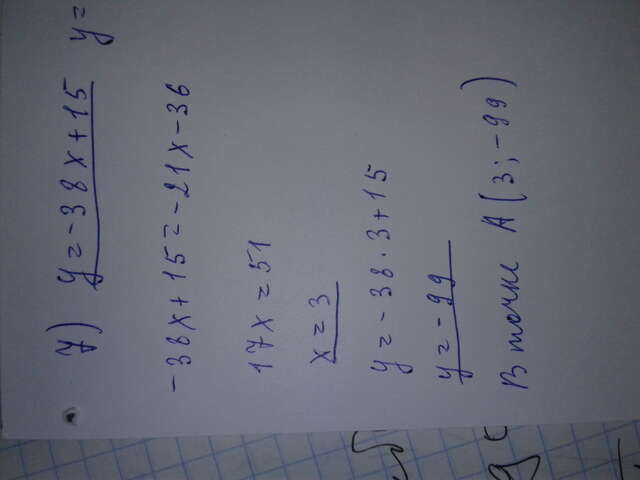 7) y=-38x+15 y=
-38x+15=-21x-36
17x=51
x=3
y=-38·3+15
y=-99
В точке A(3;-99)